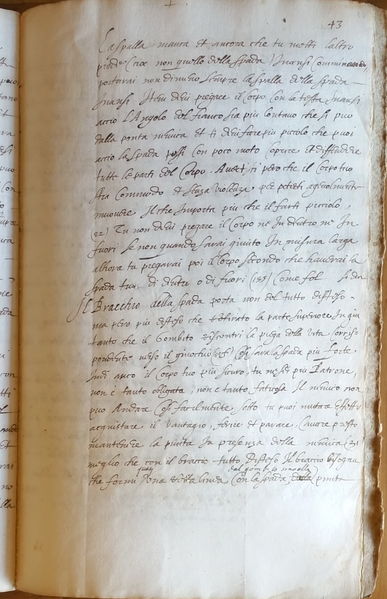 43
la spalla manca et ancora che tu metti l'altro
piede cioe non quello della spada inansi caminando
portarai non dimeno sempre la spalla della spada
inansi. Item devi piegare il corpo con la testa inansi
accio l'Angolo del fianco sia piu lontano che si puo
dalla ponta nemica et ti devi fare piu piccolo che puoi
accio la spada possi con poco moto coprire et diffendere
tutte le parti del Corpo. però che il Corpo tuo
stia Commodo et senza per poterti agevolmente
muovere Il che importa piu che il farti piccolo
Tu non devi piegare il Corpo ne in dentro ne in
fuori se non quando sarai gionto in misura larga
alhora tu piegarai poi il Corpo secondo che haverai la
spada tua di dentro o di fuori Come
Il Bracchio della spada porta non del tutto disteso
ma però piu disteso che retirato la parte superiore in qua
tanto che il Gombito riscontri la piega della Vita
pondente verso il ginocchio Cosi sara la spada piu forte
Indi avrà il Corpo tuo piu sicuro, tu piu Patrone,
non è tanto obligata, non è tanto faticosa Il nimico non
puo Andare Cosi facilmente sotto tu puoi
acquistare il Vantagio, ferire et parare
mantenere la punta in presenza della nemica
meglio che con il braccio tutto disteso Il braccio bisogna
che formi una retta linea con la spada punta